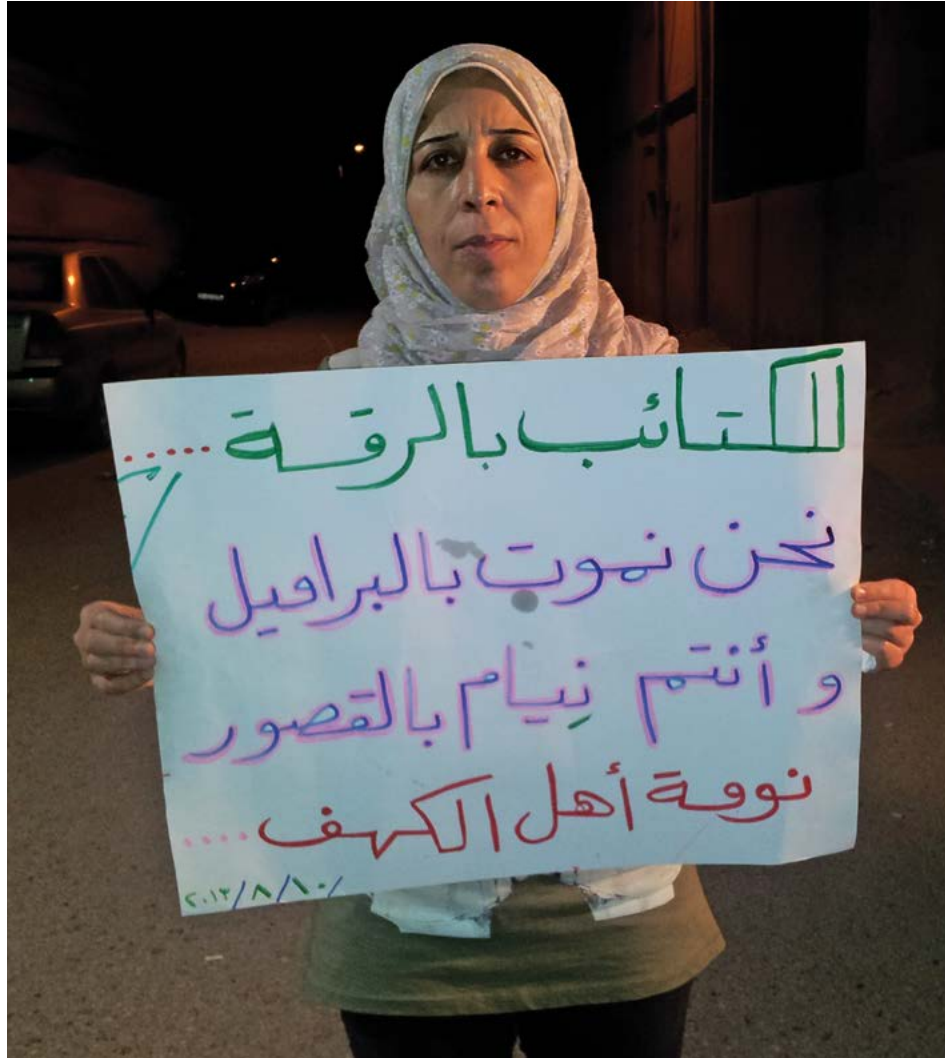 للكتائب بالرقة.....
نحن نموت بالبراميل
و أنتم نِيام بالقصور
نومة أهل الكهف....
٢٠١٣/٨/١٠/